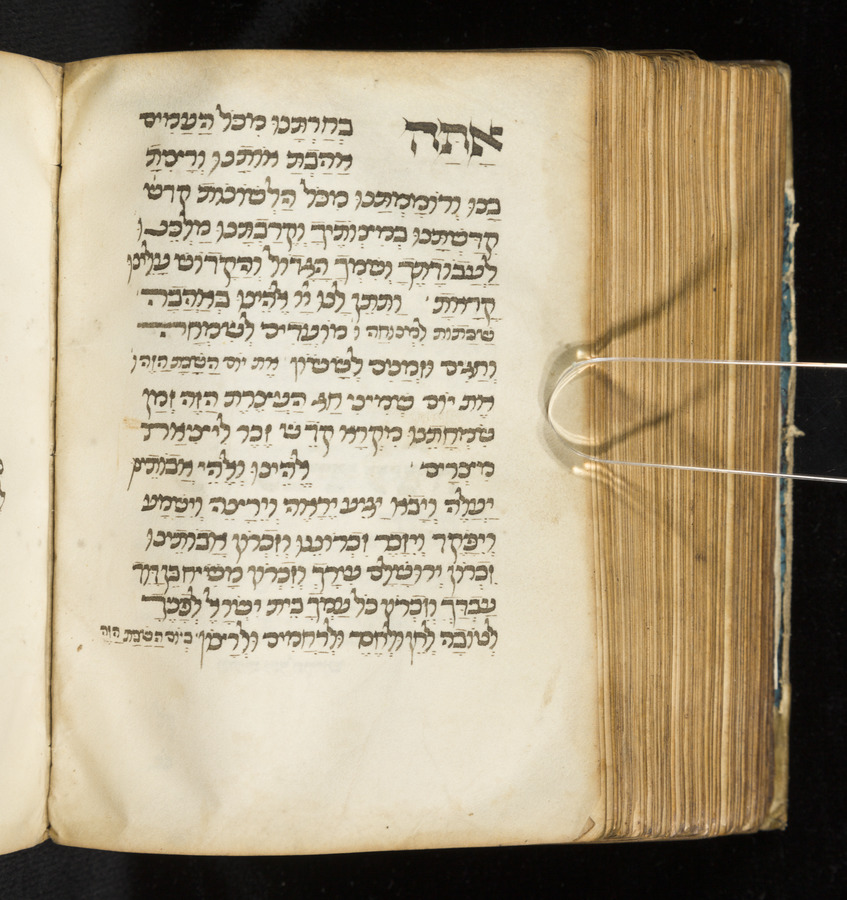 אַתָּה בחרתנו מכל העמים
אהבת אותנו ורצית
בנו ורוממתנו מכל הלשונות קדש
קדשתנו במצותיך וקרבתנו מלכנו
לעבודתך ושמך הגדול והקדוש עלינו
קראת ותתן לנו יי אלהינו באהבה
שבתות למנוחה ו מועדים לשמחה
וחגים וזמנים לששון את יום השבת הזה ו
את יום שמיני חג העצרת הזה זמן
שמחתנו מקרא קדש זכר ליציאת
מצרים אלהינו ואלהי אבותינו
יעלה ויבא יגיע יראה וירצה וישמע
ויפקד ויזכר זכרוננו וזכרון אבותינו
זכרון ירושלם עירך וזכרון משיח בן דוד
עבדך וזכרון כל עמך בית ישראל לפניך
לטובה לחן ולחסד ולרחמים ולרצון ביום השבת הזה